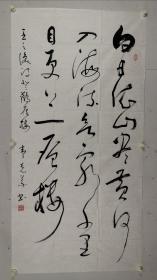 白日依山尽黄河
入海流欲穷千里
目更上一层楼
王之涣诗登鹳雀楼 书